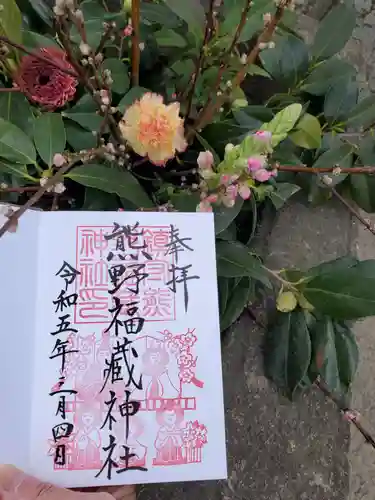 奉拝
熊野福蔵神社
令和五年三月四日